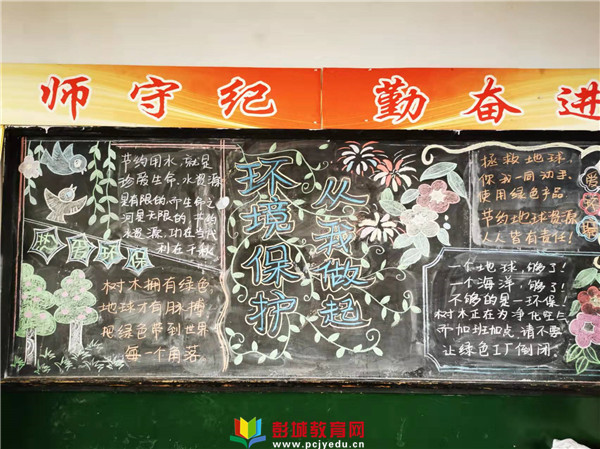 师守纪 勤奋进
节约用水,就是
珍爱生命,水资源
是有限的,而生命之
河是无限的,节约
水资源,功在当代
利在千秋
爱环保
树木拥有绿色
地球才有脉搏
把绿色带到世界
每一个角落
环境保护
从我做起
拯救地球
你我一同动手
使用绿色产品
节约地球资源
人人皆有责任!
一个地球,够了!
一个海洋,够了!
不够的是—环保!
树木正在为净化空气
而加班加点,请不要
让绿色工厂倒闭。
彭城教育网
www.pcjyedu.cn